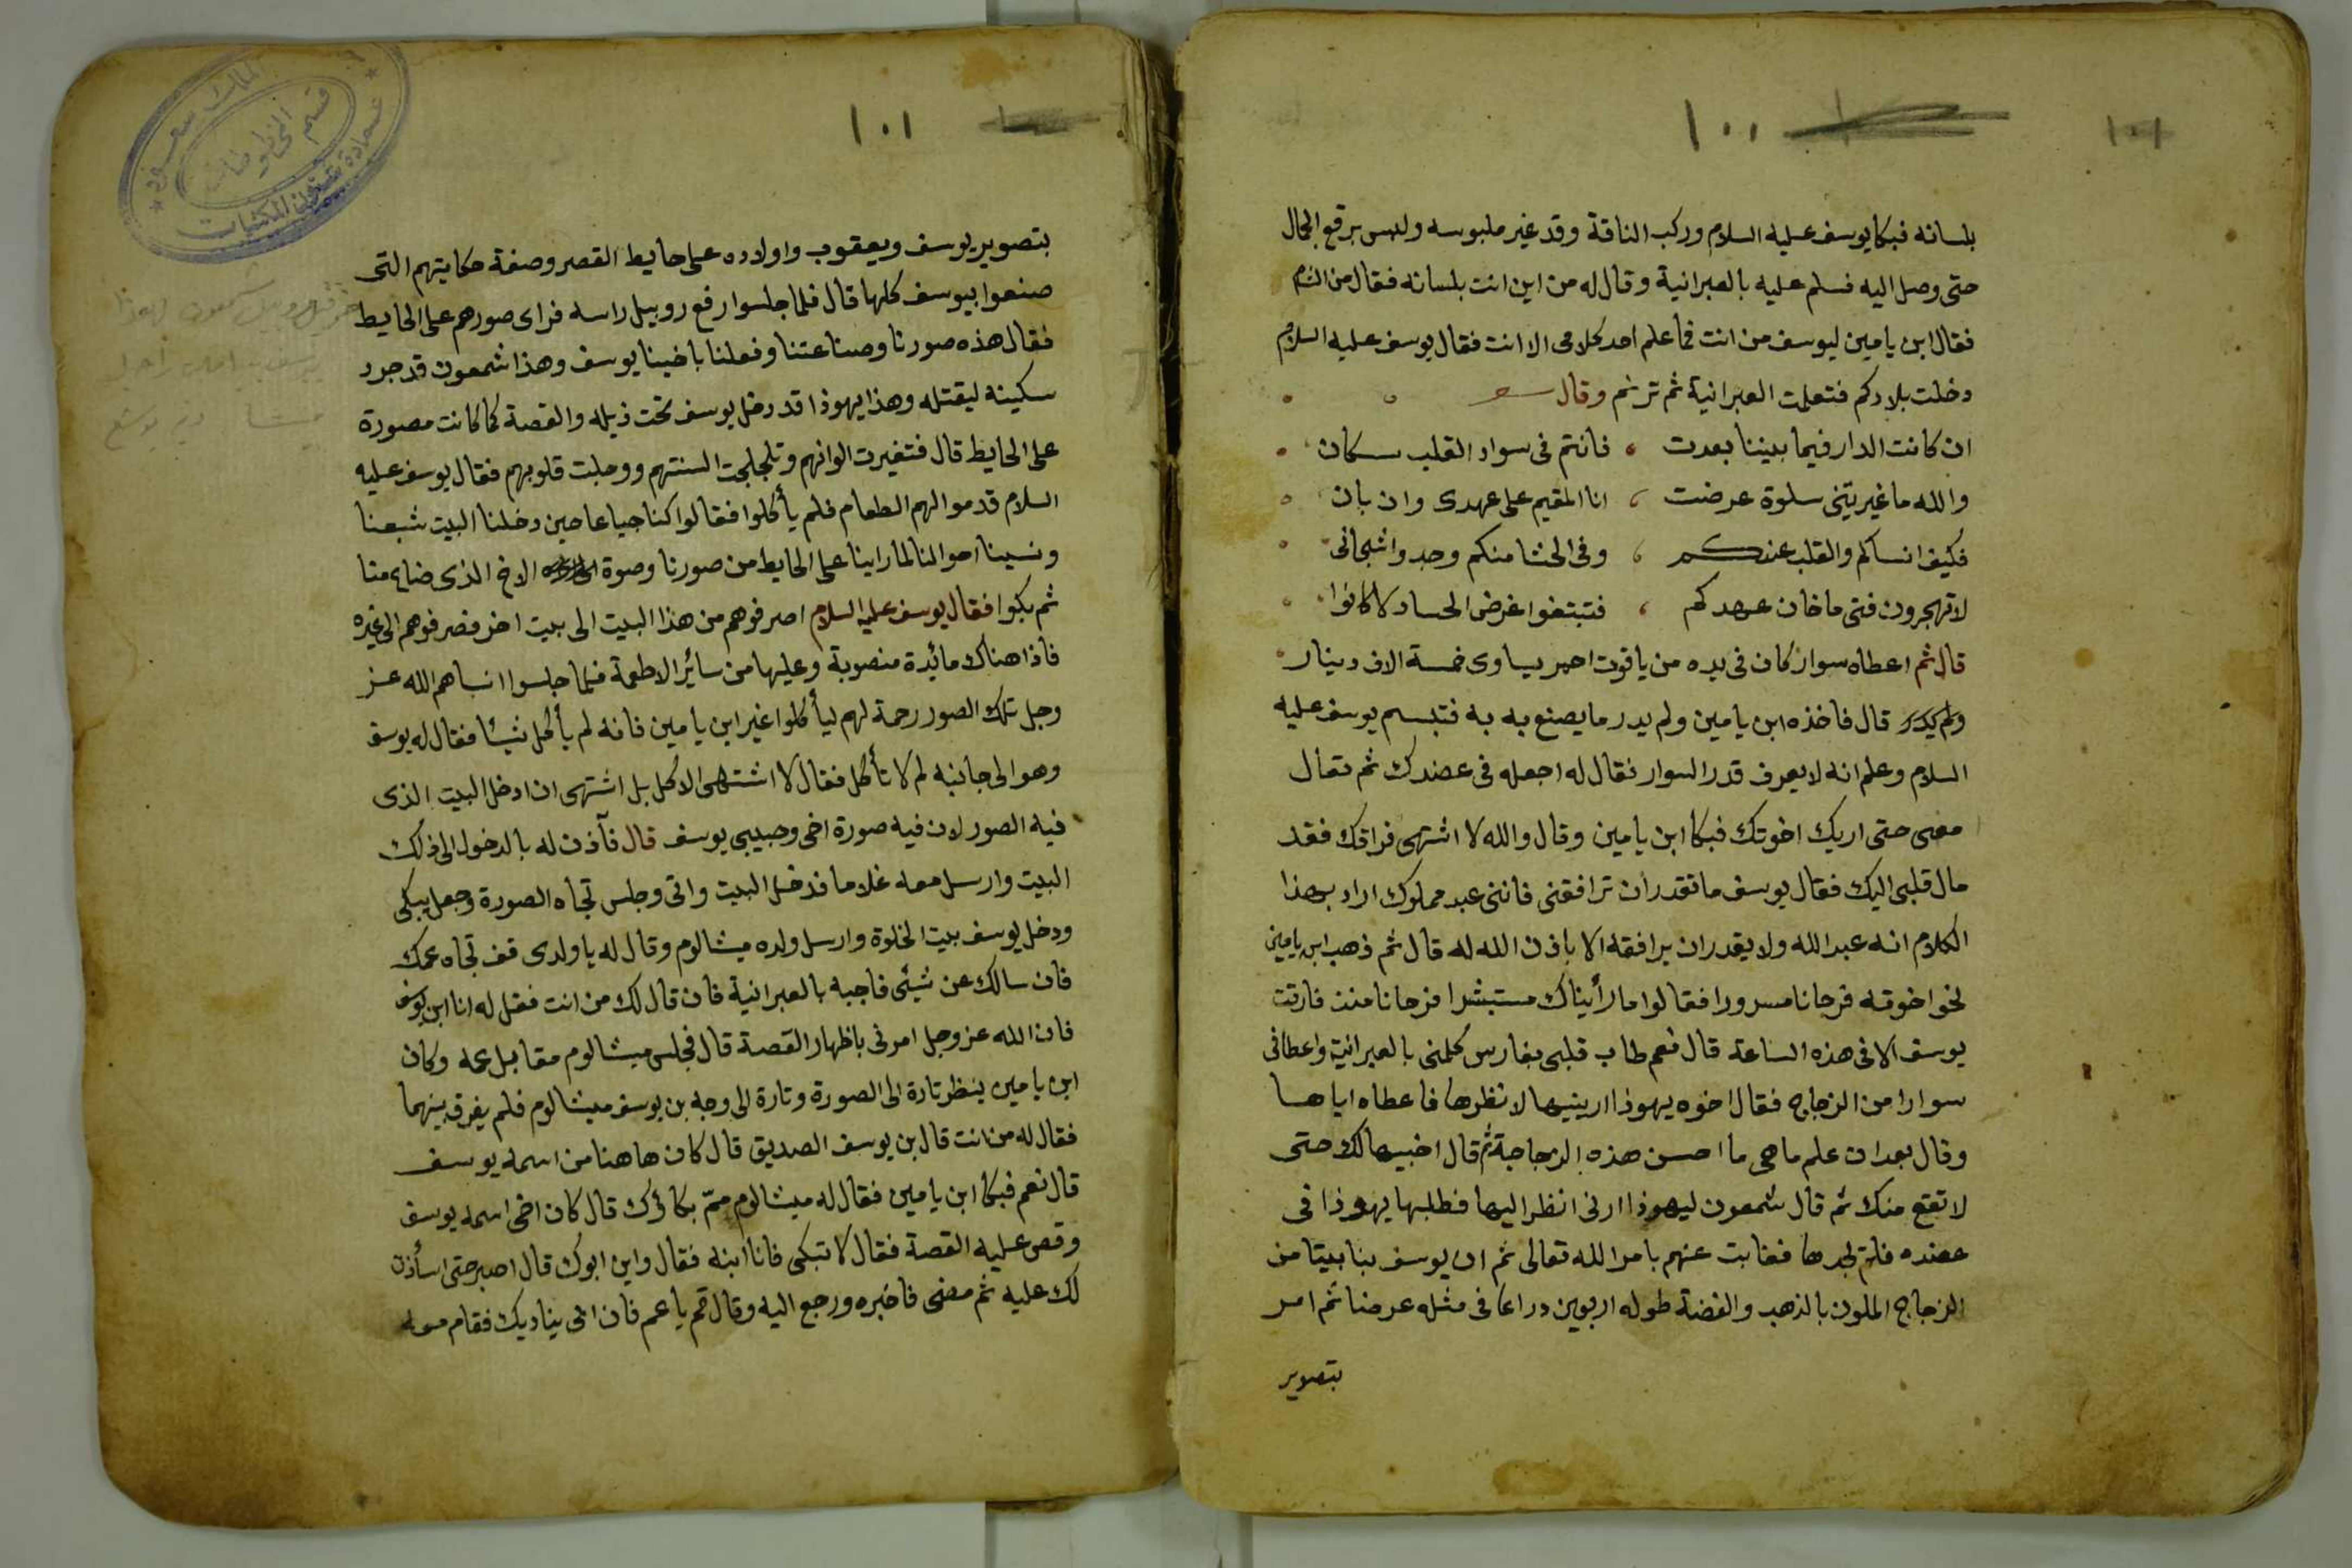 ١٠٠
١٠١
بلسانه فبكا يوسف عليه السلام وركب الناقة وقد غير ملبوسه ولبس برقع الجمال
حتى وصل اليه فسلم عليه بالعبرانية وقال له من اين انت بلسانه فقال من الشام
فقال ابن يامين ليوسف من انت فما علم احد كلامى الا انت فقال يوسف عليه السلام
دخلت بلادكم فتعلمت العبرانية ثم ترنم وقال
ان كانت الدار فيما بيننا بعدت ، فانتم فى سواد القلب سكان
والله ما غيرتنى سلوة عرضت ، انا المقيم على عهدى وان بان
فكيف انساكم والقلب عندكم ، وفى الحشا منكم وجد واشجانى
لا تهجرون فتى ما خان عهدكم ، فتبتغوا غرض الحساد لا كانوا
قال ثم اعطاه سوار كان فى يده من ياقوت احمر يساوى خمسة الاف دينار
ولم يدر قال فاخذه ابن يامين ولم يدر ما يصنع به به فتبسم يوسف عليه
السلام وعلم انه لا يعرف قدر السوار فقال له اجعله فى عضدك ثم تعال
معى حتى اريك اخوتك فبكا ابن يامين وقال والله لا اشتهى فراقك فقد
مال قلبى اليك فقال يوسف ما تقدر ان ترافقنى فاننى عبد مملوك اراد بهذا
الكلام انه عبد الله ولا يقدر ان يرافقه الا باذن الله له قال ثم ذهب ابن يامين
نحو اخوته فرحانا مسرورا فقالوا ما رأيناك مستبشرا فرحانا منذ فارقت
يوسف الا فى هذه الساعة قال نعم طاب قلبى بفارس كلمنى بالعبرانية واعطانى
سوارا من الزجاج فقال اخوه يهوذا ارينيها لانظرها فاعطاه اياها
وقال بعد ان علم ما هى ما احسن هذه الزجاجة ثم قال اخبيها لك حتى
لا تقع منك ثم قال شمعون ليهوذا ارنى انظر اليها فطلبها يهوذا فى
عضده فلم يجدها فغابت عنهم بامر الله تعالى ثم ان يوسف بنا بيتا من
الزجاج الملون بالذهب والفضة طوله اربعين دراعا فى مثله عرضا ثم امر
بتصوير
١٠١
بتصوير يوسف ويعقوب واولاده على حايط القصر وصفة حكايتهم التى
صنعوا بيوسف كلها قال فلما جلسوا رفع روبيل راسه فراى صورهم على الحايط
فقال هذه صورنا وصناعتنا وفعلنا باخينا يوسف وهذا شمعون قد جرد
سكينه ليقتله وهذا يهوذا قد دخل يوسف تحت ذيله والقصة كما كانت مصورة
على الحايط قال فتغيرت الوانهم وتلجلجت السنتهم ووجلت قلوبهم فقال يوسف عليه
السلام قدموا لهم الطعام فلم يأكلوا فقالوا كنا جياعا حين دخلنا البيت شبعنا
ونسينا احوالنا لما راينا على الحايط من صورنا وصوة الاخ الذى ضاع منا
ثم بكوا فقال يوسف عليه السلام اصرفوهم من هذا البيت الى بيت اخر فصرفوهم الى غيره
فاذا هناك مائدة منصوبة وعليها من سائر الاطعمة فلما جلسوا انساهم الله عز
وجل تلك الصور رحمة لهم ليأكلوا غير ابن يامين فانه لم يأكل شيئا فقال له يوسف
وهو الى جانبه لم لا تأكل فقال لا اشتهى الاكل بل اشتهى ان ادخل البيت الذى
فيه الصور لان فيه صورة اخى وحبيبى يوسف قال فآذن له بالدخول الى ذلك
البيت وارسل معه غلاما فدخل البيت واتى وجلس تجاه الصورة وجعل يبكى
ودخل يوسف بيت الخلوة وارسل ولده ميشالوم وقال له يا ولدى قف تجاه عمك
فان سالك عن شيئى فاجبه بالعبرانية فان قال لك من انت فقل له انا ابن يوسف
فان الله عز وجل امرنى باظهار القصة قال فجلس ميشالوم مقابل عمه وكان
ابن يامين ينظر تارة الى الصورة وتارة الى وجه بن يوسف ميشالوم فلم يفرق بينهما
فقال له من انت قال بن يوسف الصديق قال كان هاهنا من اسمه يوسف
قال نعم فبكا ابن يامين فقال له ميشالوم ممّ بكاؤك قال كان اخى اسمه يوسف
وقص عليه القصة فقال لا تبكى فانا ابنه فقال واين ابوك قال اصبر حتى اسأذن
لك عليه ثم مضى فاخبره ورجع اليه وقال قم يا عم فان ابى يناديك فقام معه
قسم المخطوطات
عمادة شئون المكتبات